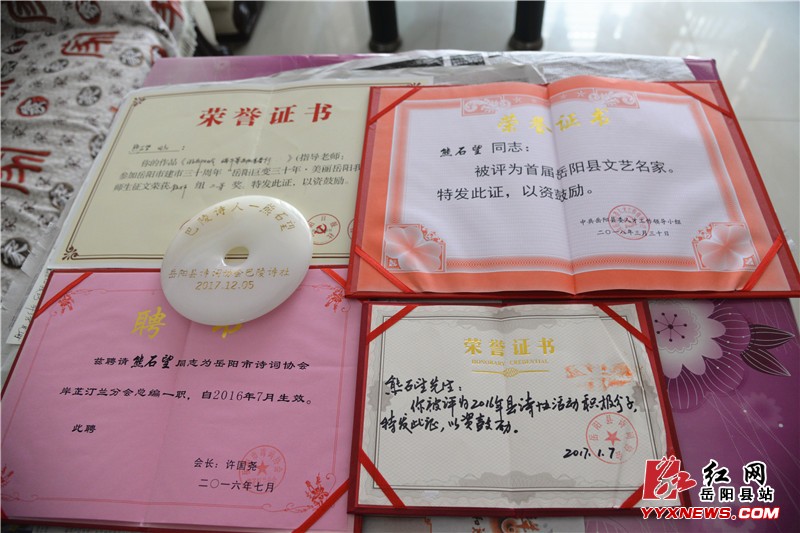 荣誉证书
你的作品《
》(指导老师:
参加岳阳市建市三十周年“岳阳巨变三十年·美丽岳阳我
师生征文荣获
组二等奖。特发此证,以资鼓励。
荣誉证书
熊石望同志:
被评为首届岳阳县文艺名家。
特发此证,以资鼓励。
中共岳阳县委人才工作领导小组
二〇一八年三月三十日
巴陵诗人—熊石望
岳阳县诗词协会巴陵诗社
2017.12.05
聘书
兹聘请熊石望同志为岳阳市诗词协会
岸芷汀兰分会总编一职,自2016年7月生效。
此聘
会长:许国尧
二〇一六年七月
荣誉证书
HONORARY CREDENTIAL
熊石望先生:
你被评为2016年县诗社活动积极分子,
特发此证,以资鼓励。
2017.1.7
红网
岳阳县站
YYXNEWS.COM